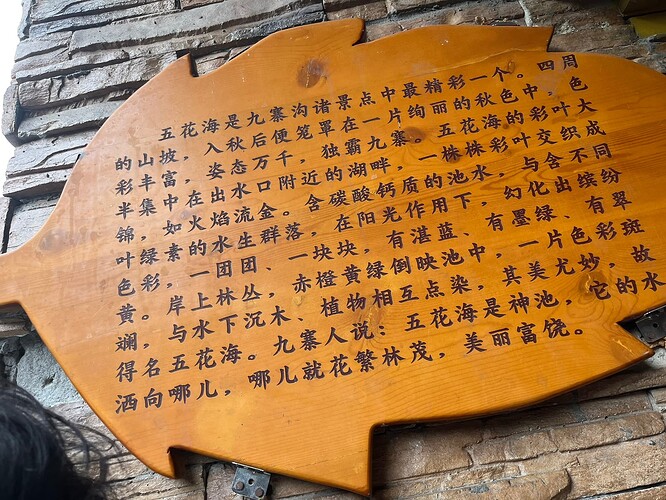 五花海是九寨沟诸景点中最精彩一个。四周
的山坡，入秋后便笼罩在一片绚丽的秋色中，色
彩丰富，姿态万千，独霸九寨。五花海的彩叶大
半集中在出水口附近的湖畔，一株株彩叶交织成
锦，如火焰流金。含碳酸钙质的池水，与含不同
叶绿素的水生群落，在阳光作用下，幻化出缤纷
色彩，一团团、一块块，有湛蓝、有墨绿、有翠
黄。岸上林丛，赤橙黄绿倒映池中，一片色彩斑
斓，与水下沉木、植物相互点染，其美尤妙，故
得名五花海。九寨人说：五花海是神池，它的水
洒向哪儿，哪儿就花繁林茂，美丽富饶。